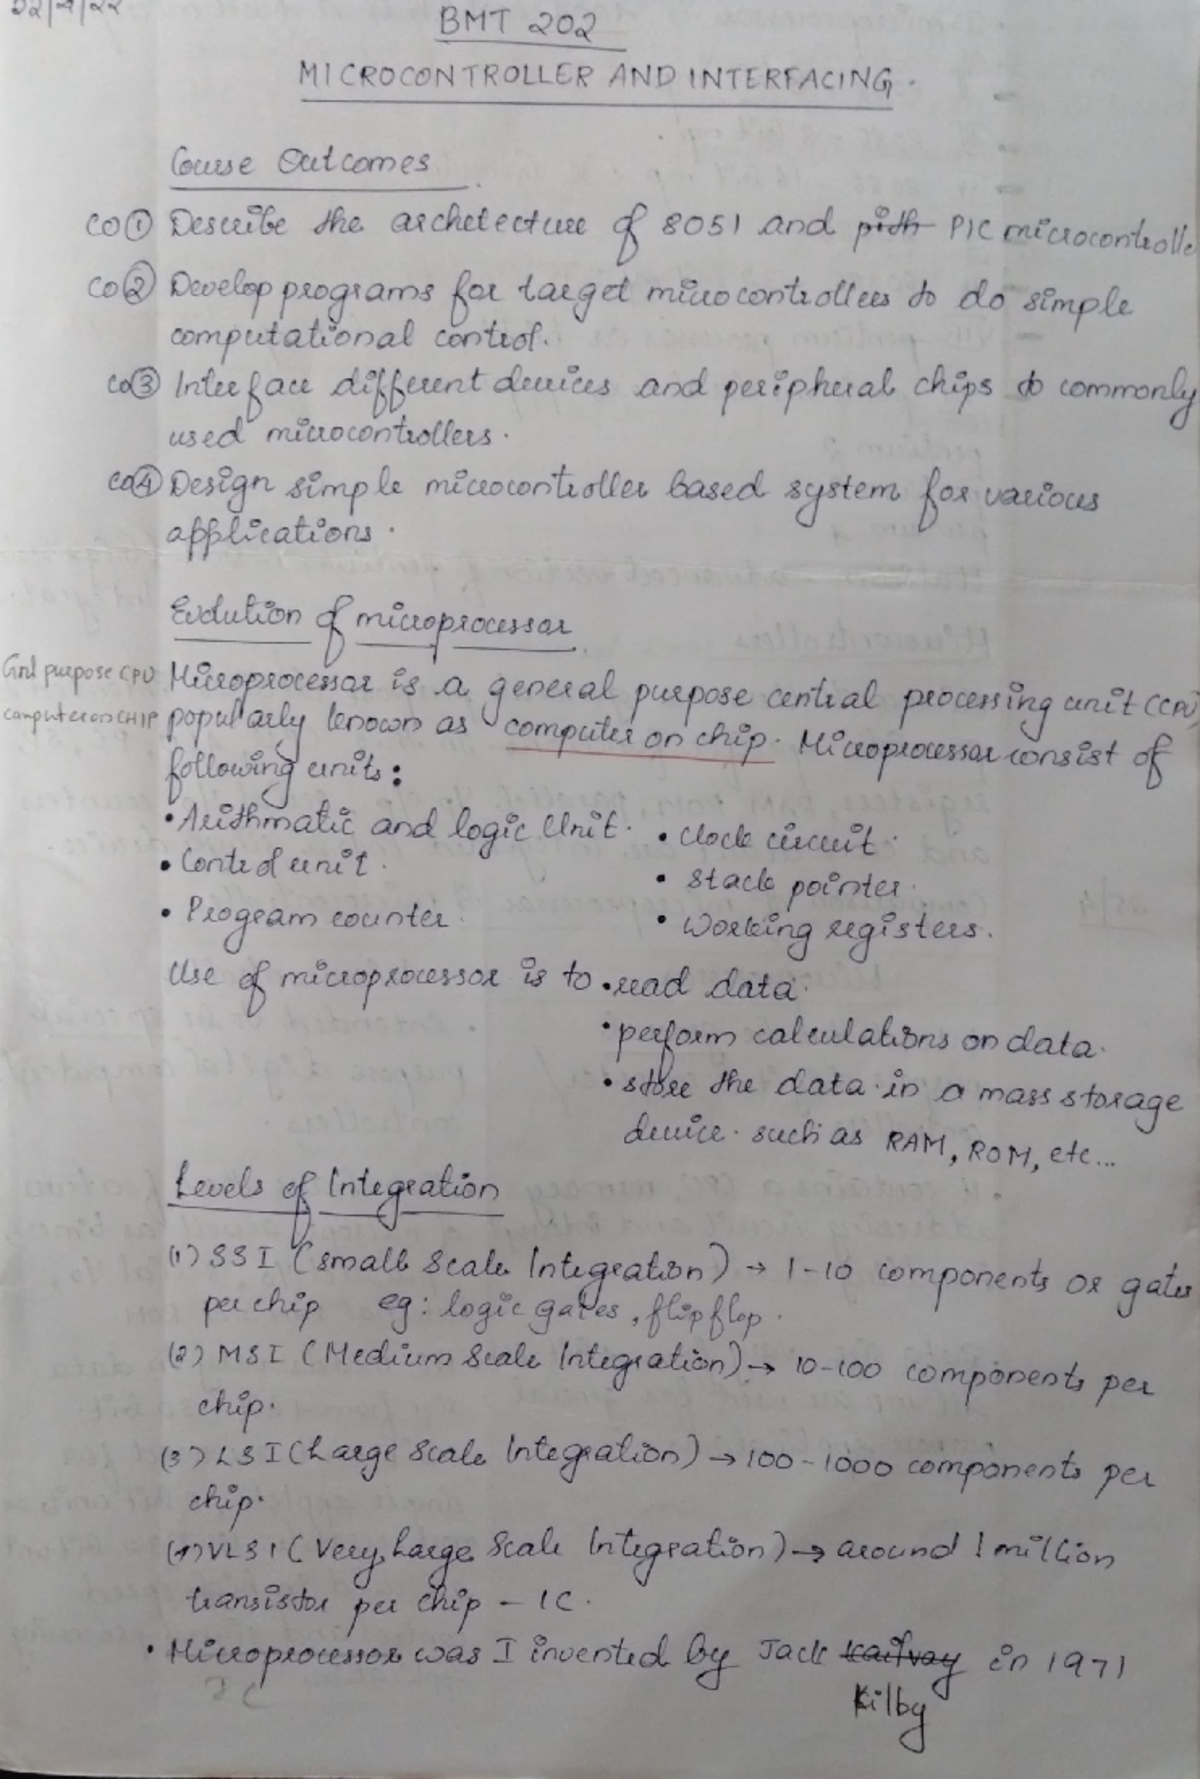 22/4/22
BMT 202
MICROCONTROLLER AND INTERFACING.
Course Outcomes
CO① Describe the archetecture of 8051 and pith PIC microcontrolle
CO② Develop programs for target microcontrollers to do simple
computational control.
CO③ Interface different devices and peripheral chips to commonly
used microcontrollers.
CO④ Design simple microcontroller based system for various
applications.
Evolution of microprocessor
Gnl purpose CPU Microprocessor is a general purpose central processing unit (CPU)
computer on CHIP popularly known as computer on chip. Microprocessor consist of
following units:
• Arithmatic and logic Unit. • Clock circuit.
• Control unit. • Stack pointer.
• Program counter. • Working registers.
Use of microprocessor is to • read data.
• perform calculations on data.
• store the data in a mass storage
device. such as RAM, ROM, etc...
Levels of Integration
(1) SSI (small Scale Integration) → 1-10 components or gates
per chip eg: logic gates, flipflop.
(2) MSI (Medium Scale Integration) → 10-100 components per
chip.
(3) LSI (Large Scale Integration) → 100-1000 components per
chip.
(4) VLSI (Very Large Scale Integration) → around 1 million
transistor per chip - IC.
• Microprocessor was I invented by Jack in 1971
Kilby